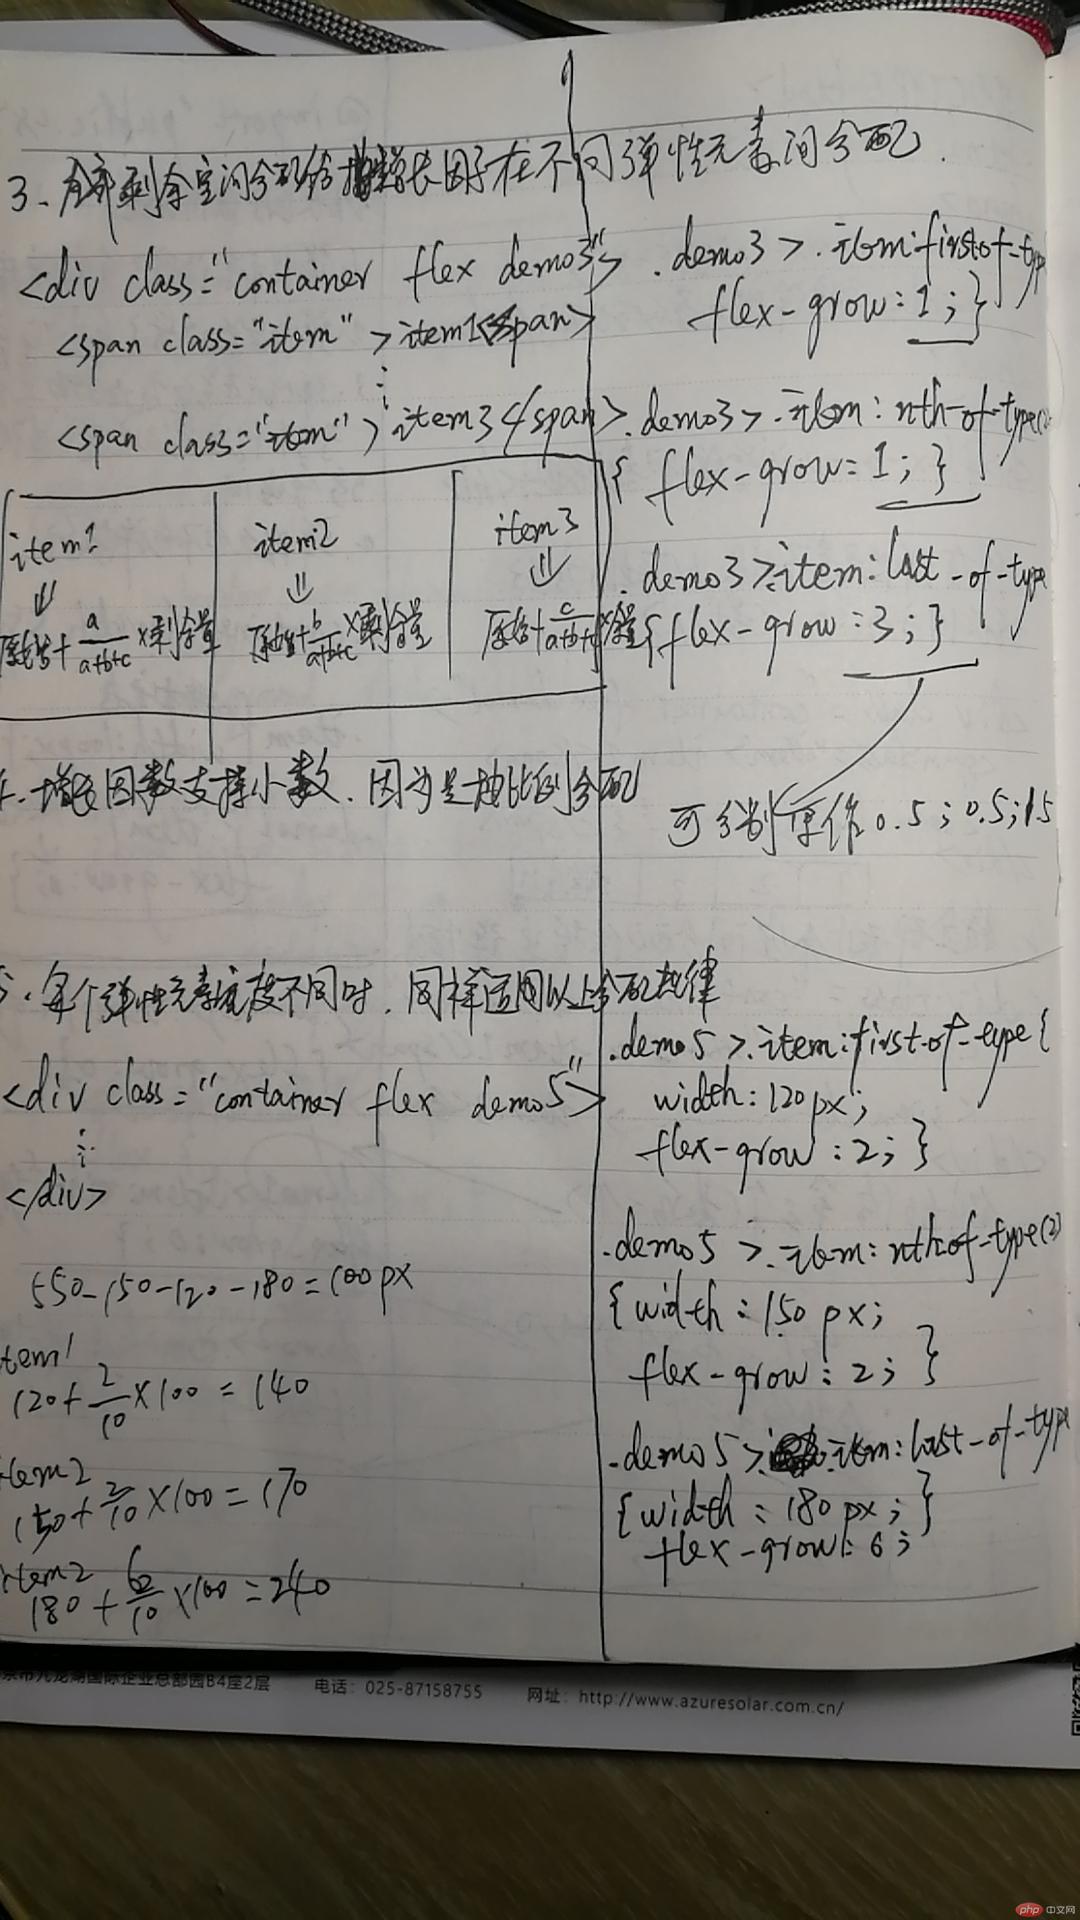 3、全部剩余空间分配给增长因子在不同弹性元素间分配.
<div class="container flex demo3">
<span class="item">item1<span>
⋮
<span class="item">item3</span>
item1
⇓
原始+ a/(a+b+c) ×剩余量
item2
⇓
原始+ b/(a+b+c) ×剩余量
item3
⇓
原始+ c/(a+b+c ×余量
.demo3 > .item:firstof-type
flex-grow:1;}
.demo3 > .item:nth-of-type(2
{ flex-grow:1;}
.demo3 > .item:last-of-type
{flex-grow:3;}
可分别写作0.5;0.5;1.5
增长因数支持小数、因为是按比例分配
、每个弹性元素宽度不同时,同样适用以上分配规律
<div class="container flex demo5">
⋮
</div>
550-150-120-180=100px
tem1
120+2/10×100=140
tem2
150+2/10×100=170
item2
180+6/10×100=240
.demo5 > .item:first-of-type {
width:120px;
flex-grow:2;}
.demo5 > .item:nth-of-type(2)
{width:150px;
flex-grow:2; }
.demo5 > .item:last-of-type
{width:180px; }
flex-grow:6;
京市九龙湖国际企业总部园B4座2层 电话：025-87158755 网址：http://www.azuresolar.com.cn/
php 中文网